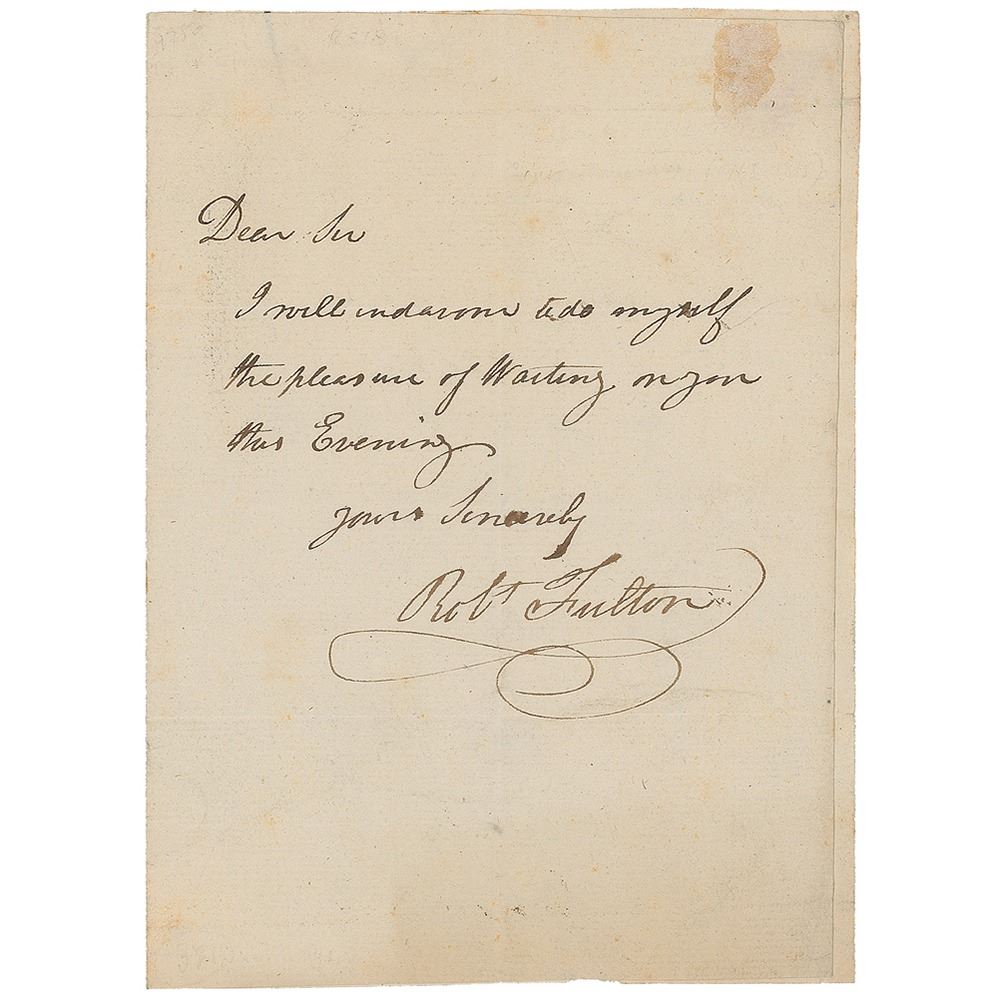 Dear Sir
I will indavour to do myself
the pleasure of Waiting on you
this Evening
yours Sincerely
Robt Fulton